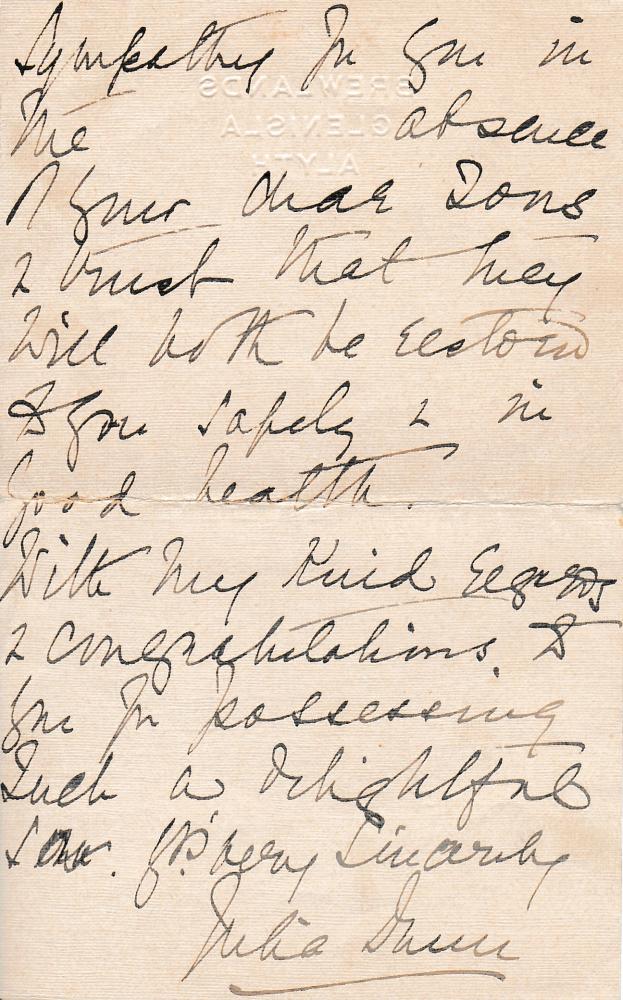 sympathy for you in
the absence
of your dear sons
& trust that they
will both be restored
to you safely & in
good health.
With my kind regards
& congratulations to
you for possessing
such a delightful
son. Yrs very sincerely
Julia
BREWLANDS
GLENISLA
ALYTH